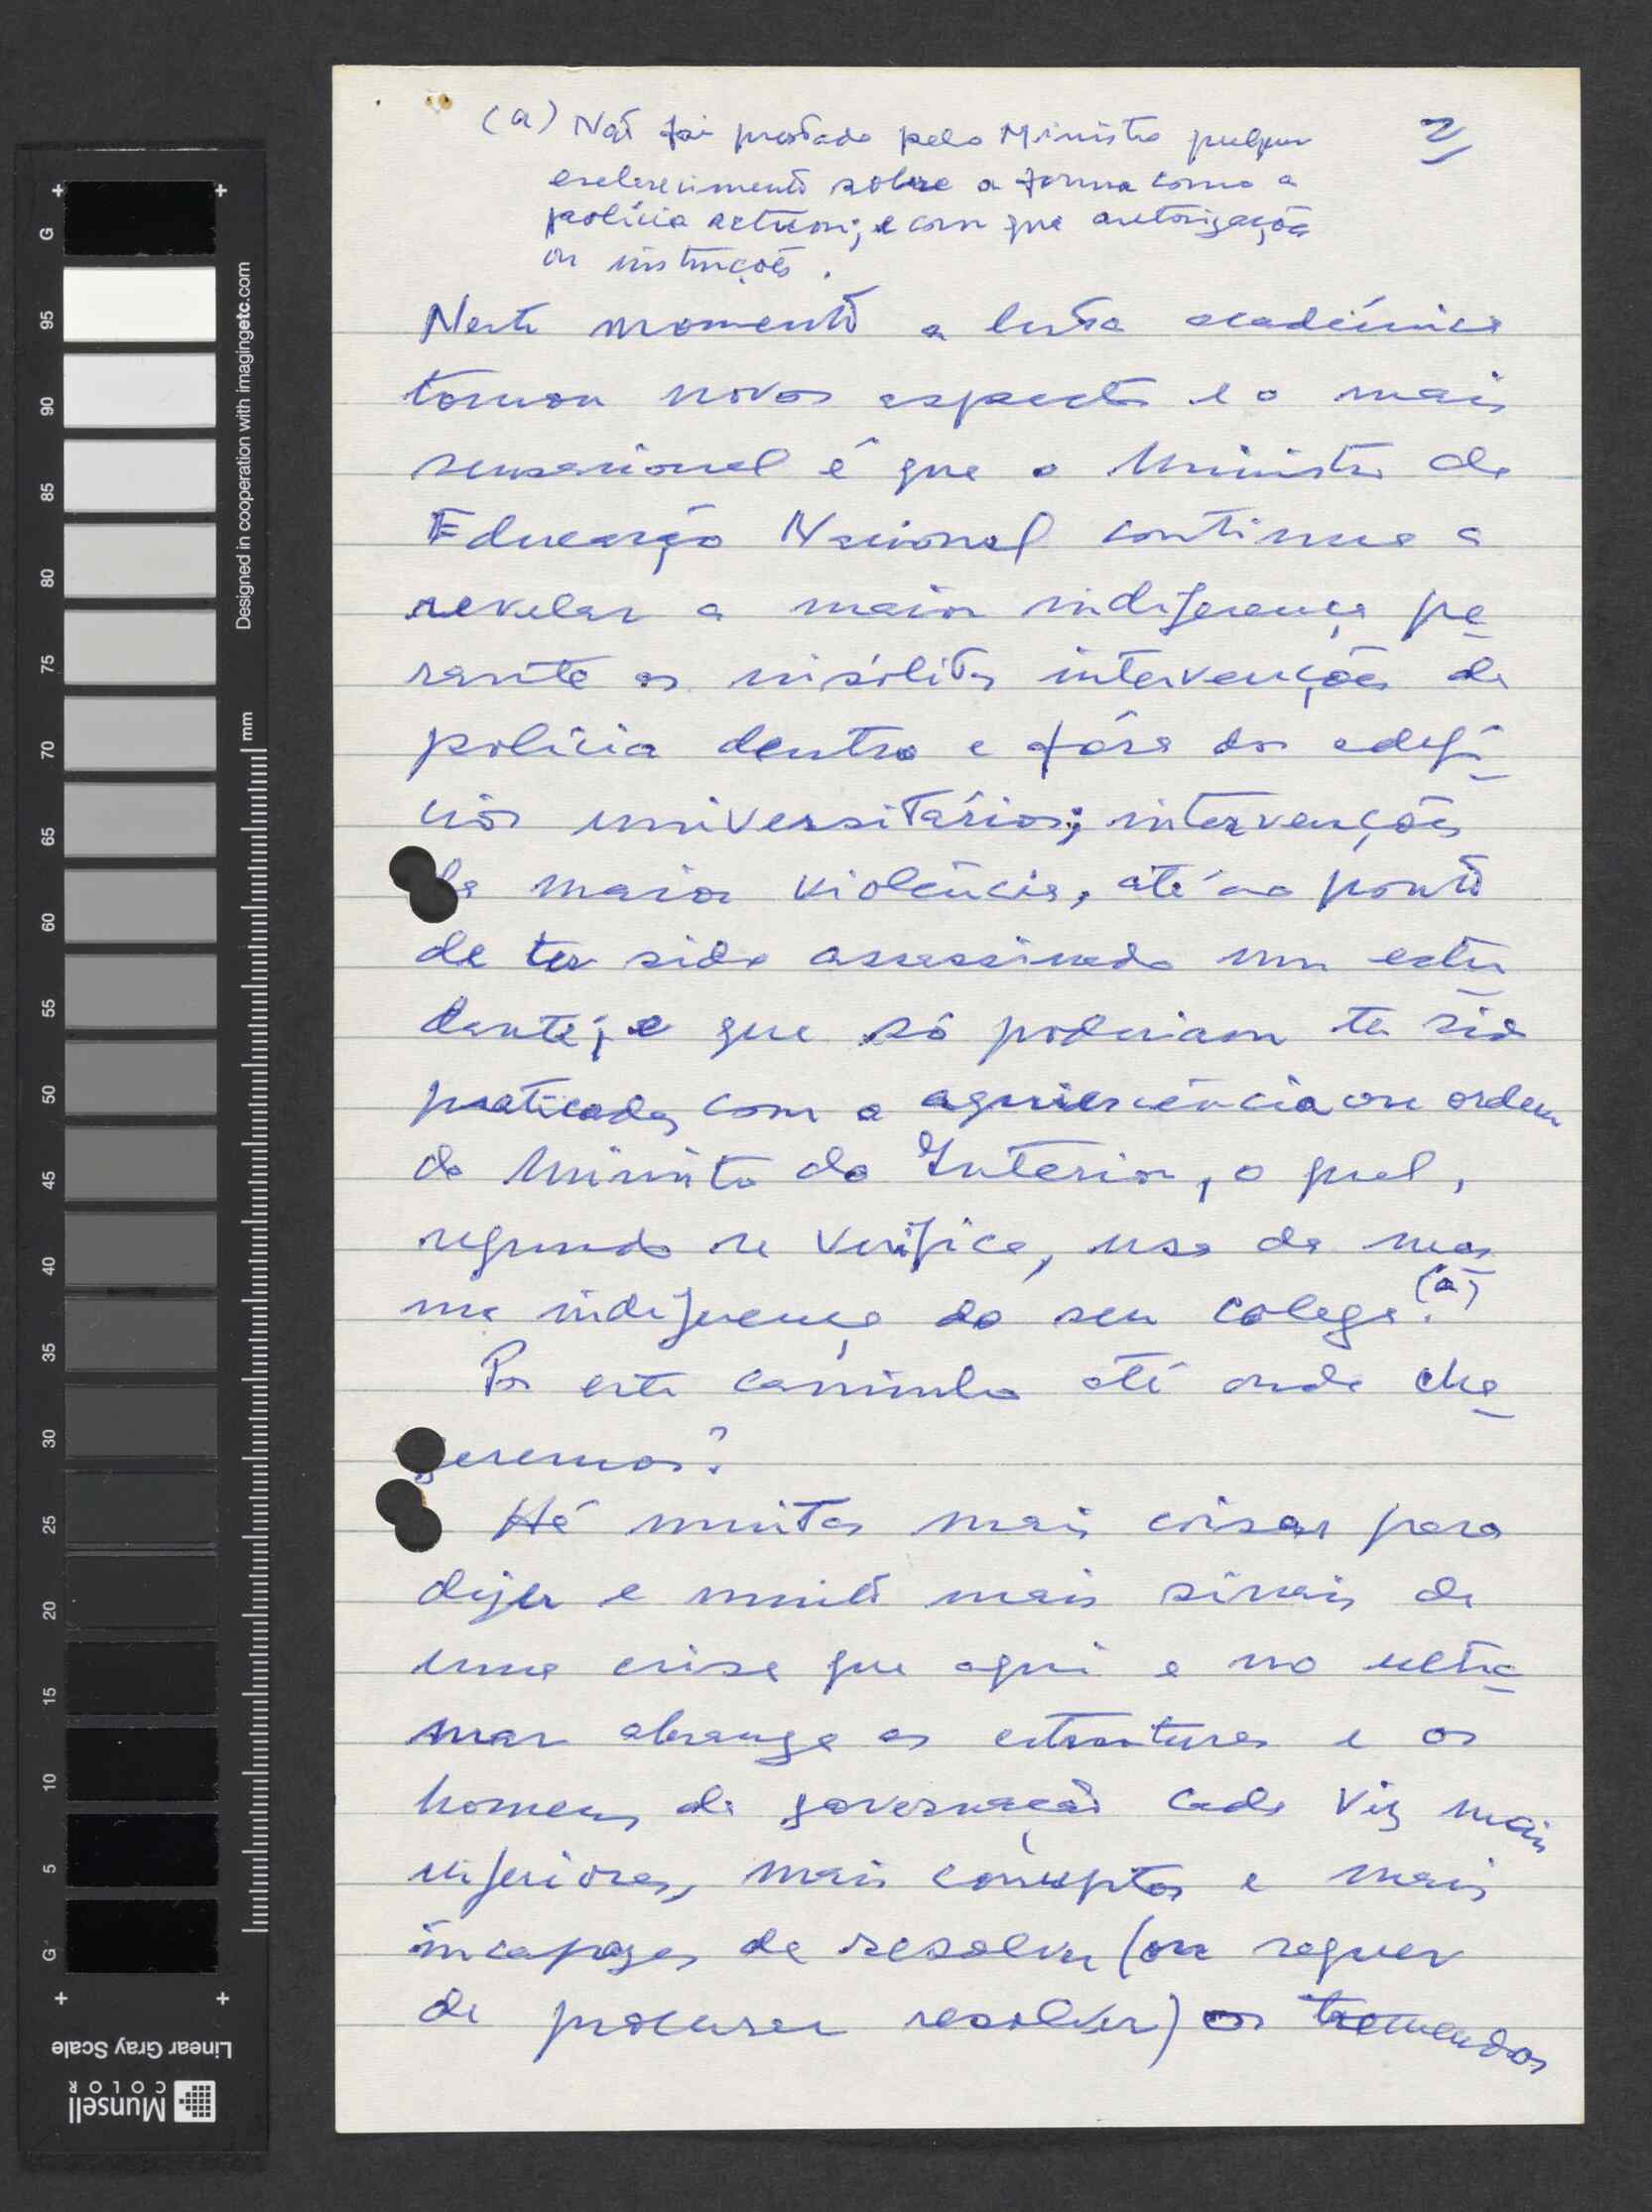 (a) Não foi prestado pelo Ministro qulquer
esclarecimento sobre a forma como a
polícia actuou; e com que autorização
ou instruções.
2/
Neste momento a luta académica
tomou novos aspectos e o mais
sensacional é que o Ministro da
Educação Nacional continua a
revelar a maior indiferença pe
rante as insólitas intervenções da
polícia dentro e fóra dos edifí
cios universitários; intervenções
da maior violência, até ao ponto
de ter sido assassinado um estu
dante; e que só poderiam ter sido
praticadas com a aquiescência ou ordem
do Ministro do Interior, o qual,
segundo se verifica, usa da mes
ma indiferença do seu colega. (a)
Por este caminho até onde che
garemos?
Há muitas mais coisas para
dizer e muito mais sinais de
uma crise que aqui e no ultra
mar abrange as estruturas e os
homens da governação cada vez mais
inferiores, mais corruptos e mais
incapazes de resolver (ou sequer
de procurar resolver) os tremendos
G 95 90 85 80 75 70 65 60 55 50 45 40 35 30 25 20 15 10 5 G
Designed in cooperation with imagingetc.com
mm
Linear Gray Scale
Munsell
COLOR